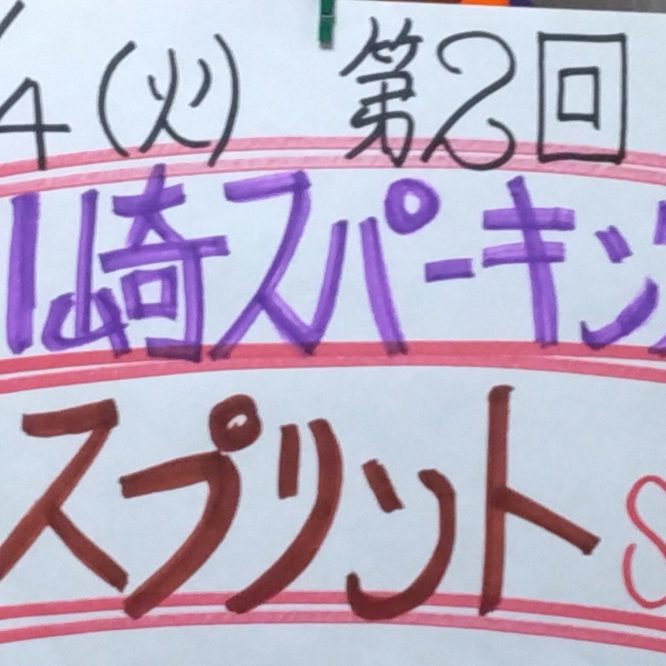 4(火) 第2回
川崎スパーキン
スプリント S